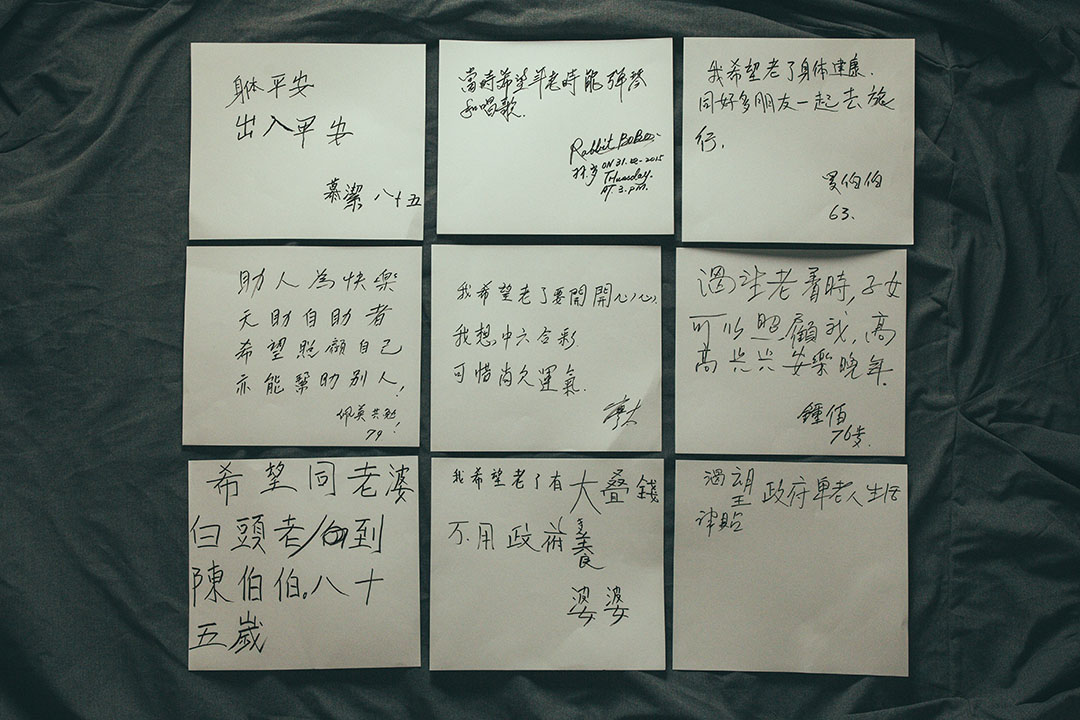 身体平安
出入平安
慕潔 八十五
當時希望年老時能彈琴
和唱歌.
Rabbit BoBo
ON 31.12.2015
Thursday.
AT 3.pm.
我希望老了身体健康.
同好多朋友一起去旅
行.
伯伯
63.
助人為快樂
天助自助者
希望照顧自己
亦能幫助別人!
佩英共勉!
79
我希望老了要開開心心.
我想中六合彩
可惜尚欠運氣.
老着時,子女
可以照顧我,高
高兴兴安樂晚年.
鍾佰
76歲.
希望同老婆
白頭老到
陳伯伯。八十
五歲
我希望老了有大叠錢
不用政府養
婆婆
望政府單老人生活
津貼